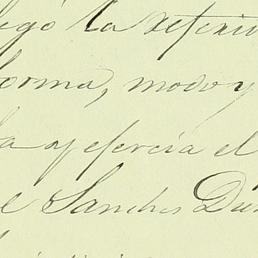 egó la referi
forma, modo y
la ejercia el
el Sanches Du